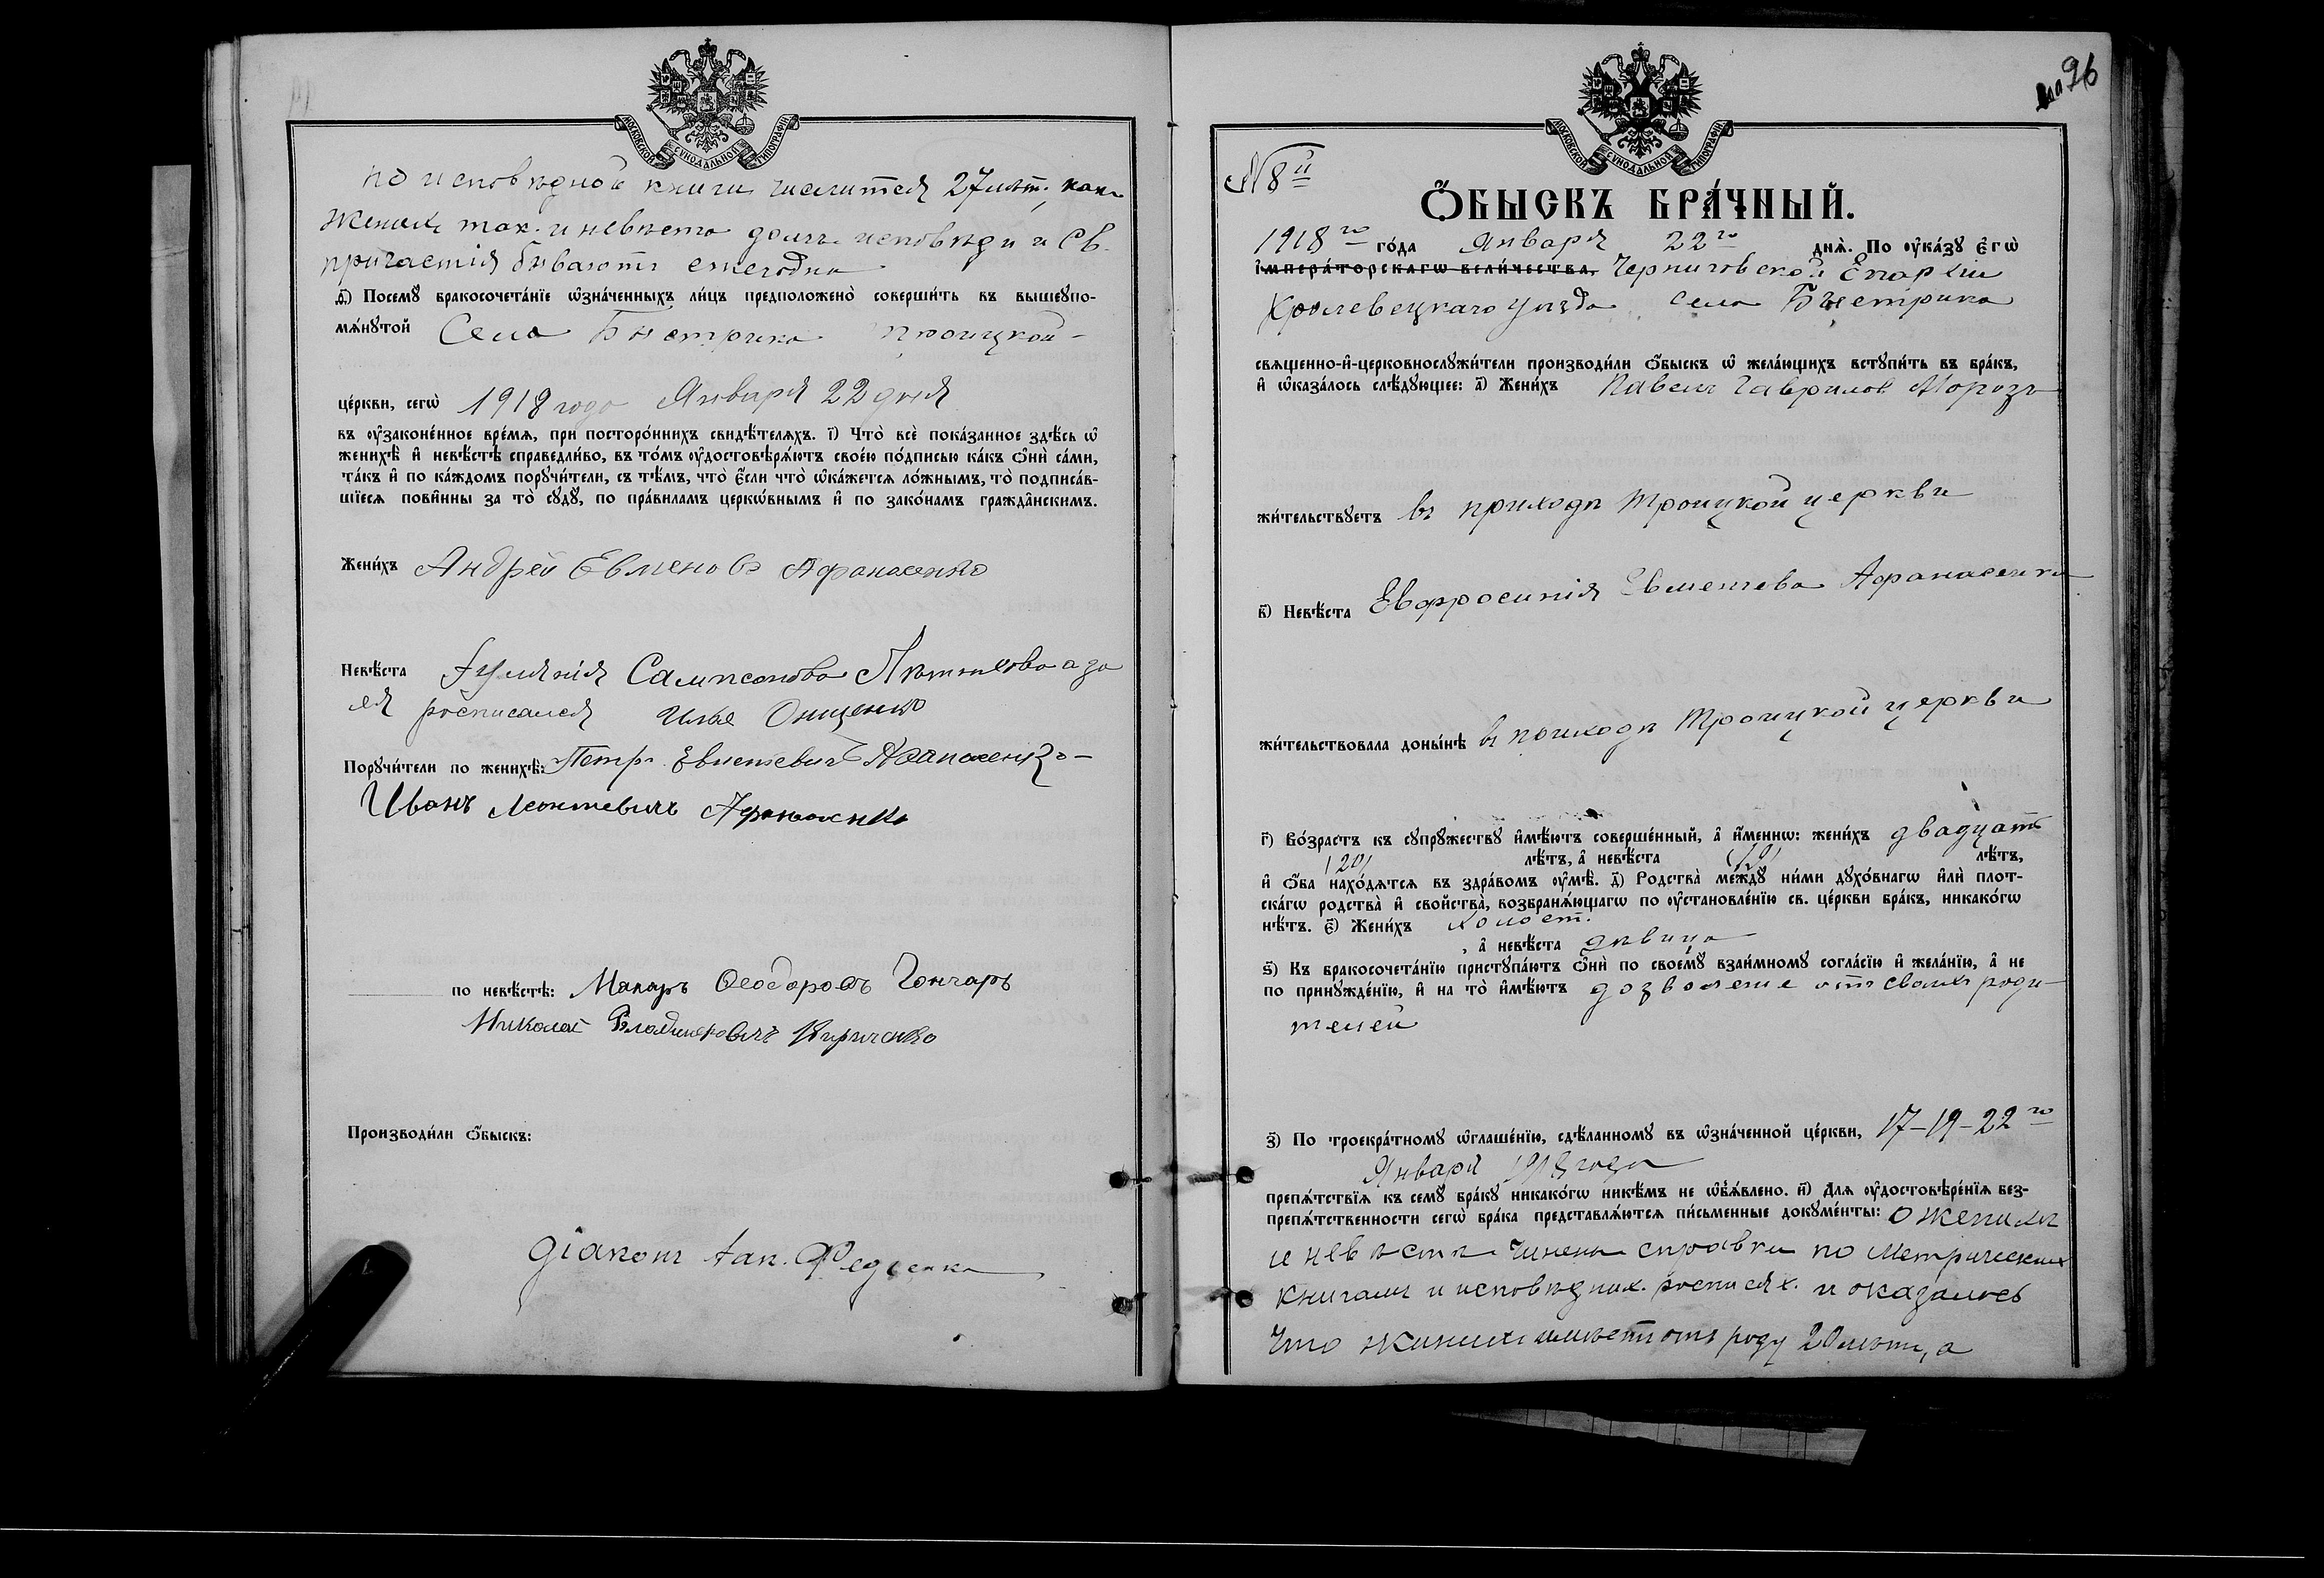 МОСКОВСКОЙ СѴНОДАЛЬНОЙ ТИПОГРАФІИ
по исповѣдной книги числится 27 лѣт, какъ
женихъ так. и невѣста долгъ исповѣди и Св.
причастія бываютъ ежегодно
ѳ҃) Посемꙋ̀ бракосочета́нїе ѡ҆зна́ченныхъ ли́цъ предположено̀ соверши́ть въ вышеꙋпо-
мѧ́нꙋтой Села Быстрика Троицкой
це́ркви, сегѡ̀ 1918 года Января 22 дня
въ ᲂу҆законе́нное вре́мѧ, при посторо́ннихъ свидѣ́телѧхъ. і҃) Что̀ всѐ пока́занное здѣ́сь ѡ҆
женихѣ̀ и҆ невѣ́стѣ справедли́во, въ то́мъ ᲂу҆достовѣрѧ́ютъ свое́ю по́дписью ка́къ ѻ҆нѝ са́ми,
та́къ и҆ по ка́ждомъ порꙋчи́тели, съ тѣ́мъ, что̀ є҆́сли что̀ ѡ҆ка́жетсѧ ло́жнымъ, то̀ подписа́в-
шїесѧ пови́нны за то̀ сꙋдꙋ̀, по пра́виламъ церкѡ́внымъ и҆ по зако́намъ гражда̂нскимъ.
Жени́хъ Андрей Евменовъ Афанасенко
Невѣ́ста Сампсонова а за
ея росписался Илья Онищенко
Порꙋчи́тели по женихѣ̀: Петръ Афанасенко
Иванъ Леонтевичъ Афанасенко
по невѣ́стѣ: Макаръ Ѳеодоровъ Гончаръ
Николай Владимировичъ Кириченко
Производи́ли ѻ҆́быскъ:
діаконъ Федсенко
96
МОСКОВСКОЙ СѴНОДАЛЬНОЙ ТИПОГРАФІИ
№ 8й
Ѻ҆́БЫСКЪ БРА́ЧНЫЙ.
1918го го́да Января 22го днѧ̀. По ᲂу҆ка́зꙋ є҆гѡ̀
і҆мпера́торскагѡ вели́чества, Черниговской Епархіи
Кролевецкаго уѣзда села Быстрика
свѧщенно-и҆-церковнослꙋжи́тели производи́ли ѻ҆́быскъ ѡ҆ жела́ющихъ встꙋпи́ть въ бра́къ,
и҆ ѡ҆каза́лось слѣ́дꙋющее: а҃) Жени́хъ Павелъ Гаврилов Морозъ
жи́тельствꙋетъ въ приходѣ Троицкой церкви
в҃) Невѣ́ста Евфросинія Евменіева Афанасенкова
жи́тельствовала доны́нѣ въ приходѣ Троицкой церкви
г҃) Во́зрастъ къ сꙋпрꙋ́жествꙋ и҆мѣ́ютъ соверше́нный, а҆ и҆́меннѡ: жени́хъ двадцать
/20/ лѣ́тъ, а҆ невѣ́ста лѣ́тъ,
и҆ ѻ҆́ба нахо́дѧтсѧ въ здра́вомъ ᲂу҆мѣ̀. д҃) Родства̀ ме́ждꙋ ни́ми дꙋхо́внагѡ и҆лѝ плот-
ска́гѡ родства̀ и҆ сво́йства, возбранѧ́ющагѡ по ᲂу҆становле́нїю св. це́ркви бра́къ, никако́гѡ
нѣ́тъ. є҃) Жени́хъ холост.
, а҆ невѣ́ста дѣвица
ѕ҃) Къ бракосочета́нїю пристꙋпа́ютъ ѻ҆нѝ по своемꙋ̀ взаи́мномꙋ согла́сїю и҆ жела́нїю, а҆ не
по принꙋжде́нїю, и҆ на то̀ и҆мѣ́ютъ дозволение отъ своихъ роди-
телей
з҃) По троекра́тномꙋ ѡ҆глаше́нїю, сдѣ́ланномꙋ въ ѡ҆зна́ченной це́ркви, 17-19-22го
Января 1918 года
препѧ́тствїѧ къ семꙋ̀ бра́кꙋ никако́гѡ никѣ́мъ не ѡ҆б̾ѧ́влено. и҃) Длѧ ᲂу҆достовѣре́нїѧ без-
препѧ́тственности сегѡ̀ бра́ка представлѧ́ютсѧ пи́сьменные докꙋме́нты: о женихѣ
и невѣстѣ чинена справка по метрическим
книгамъ и исповѣдных. росписях. и оказалось
что жинихъ имѣетъ отъ роду 20 лѣтъ, а